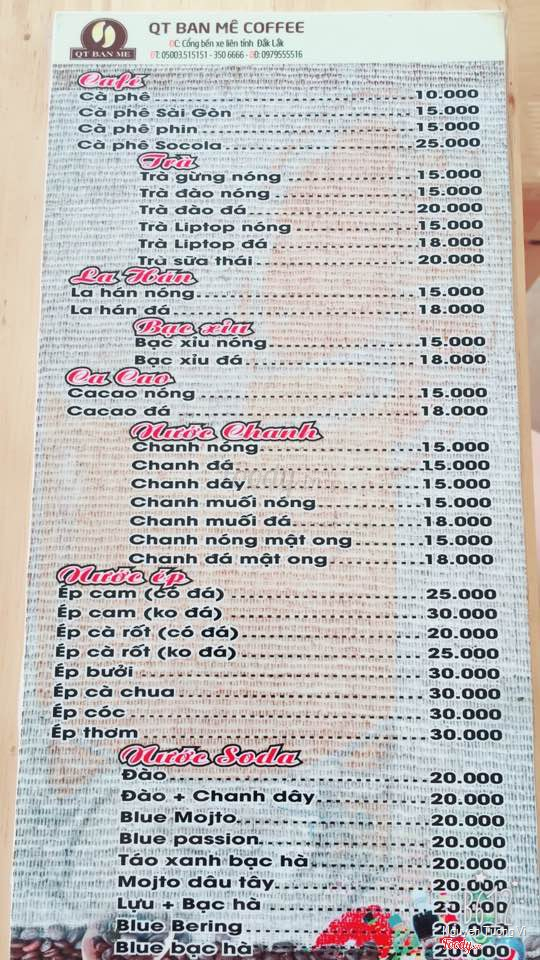 QT BAN MÊ
QT BAN MÊ COFFEE
ĐC: Cổng bến xe liên tỉnh Đắk Lắk
ĐT: 05003.515151 - 350 6666 - DĐ: 0979555516
Café
Cà phê 10.000
Cà phê Sài Gòn 15.000
Cà phê phin 15.000
Cà phê Socola 25.000
Trà
Trà gừng nóng 15.000
Trà đào nóng 15.000
Trà đào đá 20.000
Trà Liptop nóng 15.000
Trà Liptop đá 18.000
Trà sữa thái 20.000
La Hán
La hán nóng 15.000
La hán đá 18.000
Bạc xỉu
Bạc xỉu nóng 15.000
Bạc xỉu đá 18.000
Ca Cao
Cacao nóng 15.000
Cacao đá 18.000
Nước Chanh
Chanh nóng 15.000
Chanh đá 15.000
Chanh dây 15.000
Chanh muối nóng 15.000
Chanh muối đá 18.000
Chanh nóng mật ong 15.000
Chanh đá mật ong 18.000
Nước ép
Ép cam (có đá) 25.000
Ép cam (ko đá) 30.000
Ép cà rốt (có đá) 20.000
Ép cà rốt (ko đá) 25.000
Ép bưởi 30.000
Ép cà chua 30.000
Ép cóc 30.000
Ép thơm 30.000
Nước Soda
Đào 20.000
Đào + Chanh dây 20.000
Blue Mojto 20.000
Blue passion 20.000
Táo xanh bạc hà 20.000
Mojto dâu tây 20.000
Lựu + Bạc hà 20.000
Blue Bering 20.000
Blue bạc hà 20.000
Foody